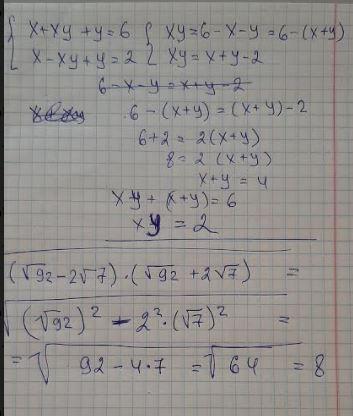 { x+xy+y=6 { xy=6-x-y=6-(x+y)
{ x-xy+y=2 { xy=x+y-2
6-x-y=x+y-2
6-(x+y)=(x+y)-2
6+2=2(x+y)
8=2(x+y)
x+y=4
xy+(x+y)=6
xy=2
√(√92-2√7)·(√92+2√7) =
√(√92)²-2²·(√7)² =
=√92-4·7 =√64 =8